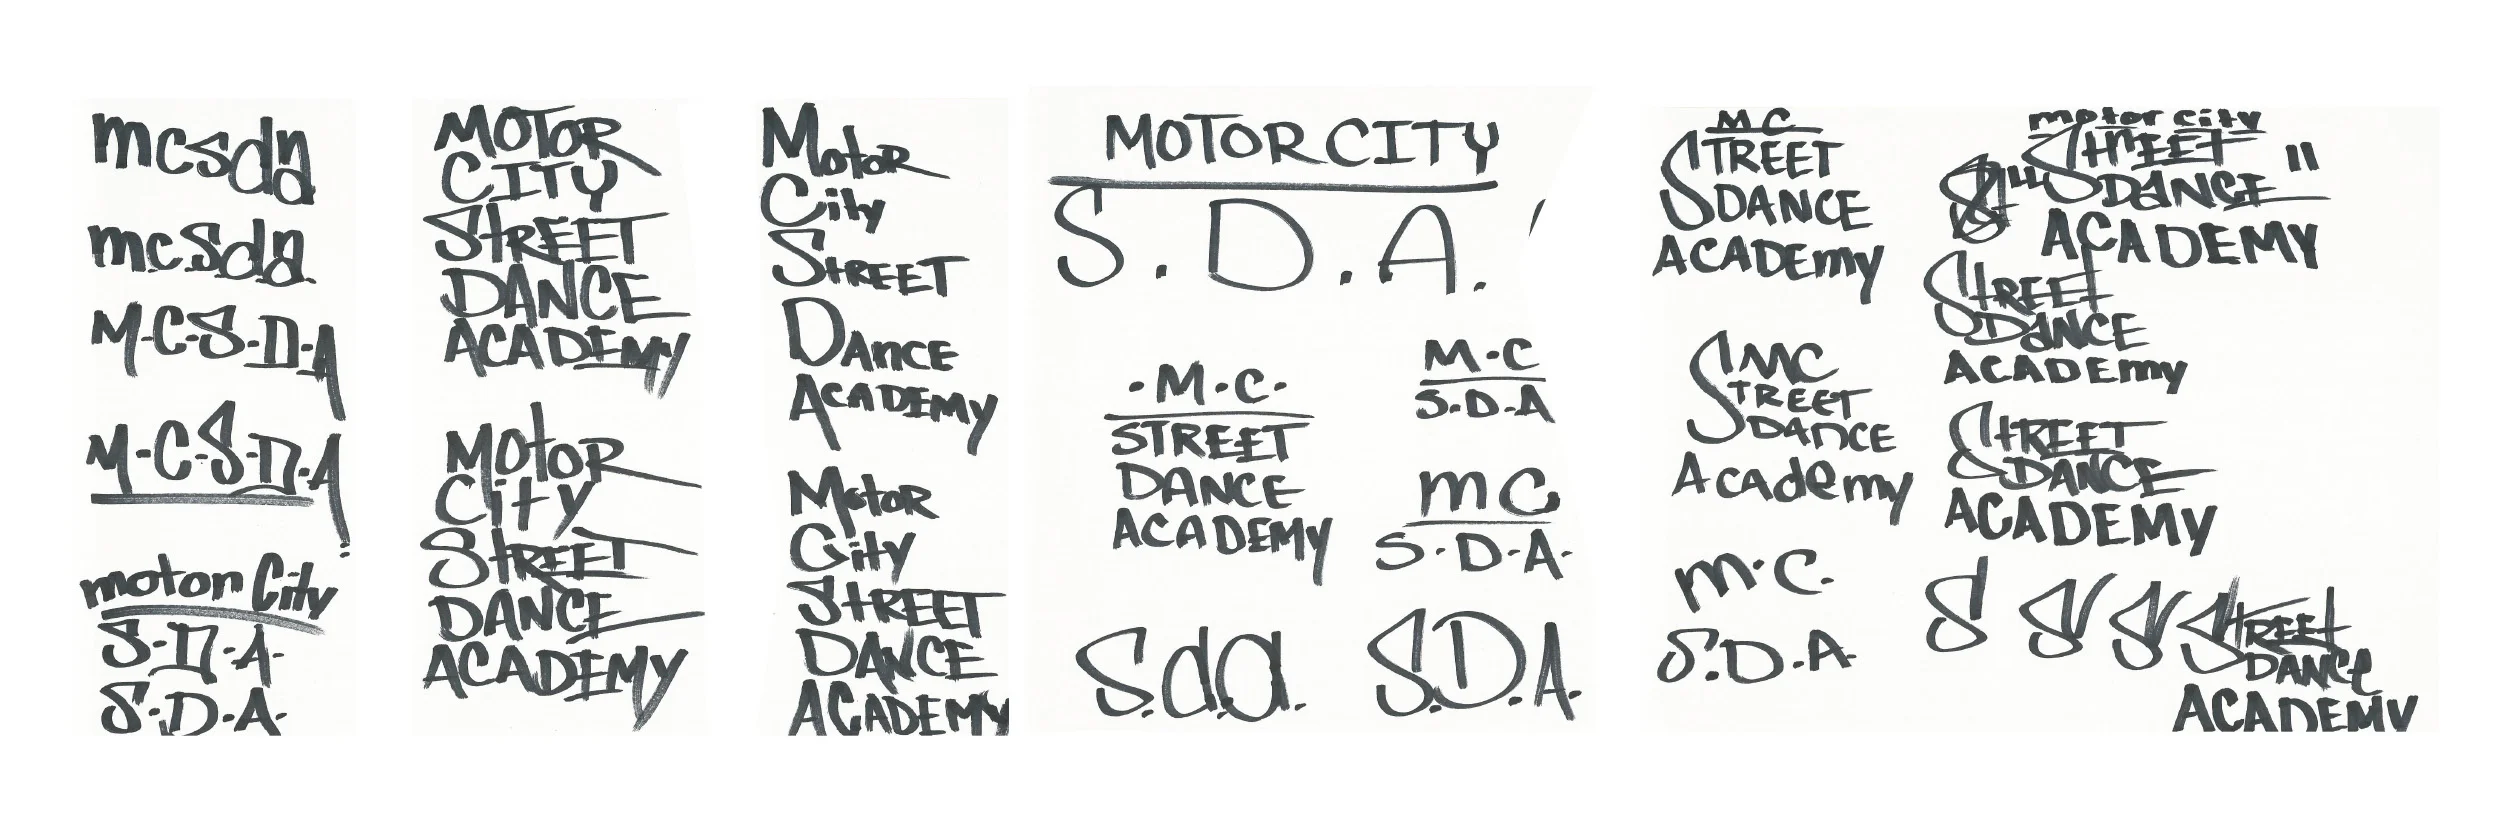 mcsda
mcsda
M-C-S-D-A
M-C-S-D-A
motor City
S-D-A-
S-D-A-
MOTOR
CITY
STREET
DANCE
ACADEMY
MOtOR
City
StREET
DANCE
ACADEMY
MotoR
City
StREET
DAnCE
ACADEMY
MotoR
City
StREET
DANCE
ACADEMY
MOTOR CITY
S.D.A.
·M·C·
STREET
DANCE
ACADEMY
M·C
S·D·A
mC
S·D·A·
S.d.a.
S.D.A.
MC
STREET
DANCE
ACADEmy
MC
STREET
DANCE
Academy
M·C.
S.D.A.
motor city
StREET
DANCE
ACADEMY
StREET
DANCE
ACADEmy
StREET
DANCE
ACADEMY
S S S StREEt
DANCE
ACADEMY